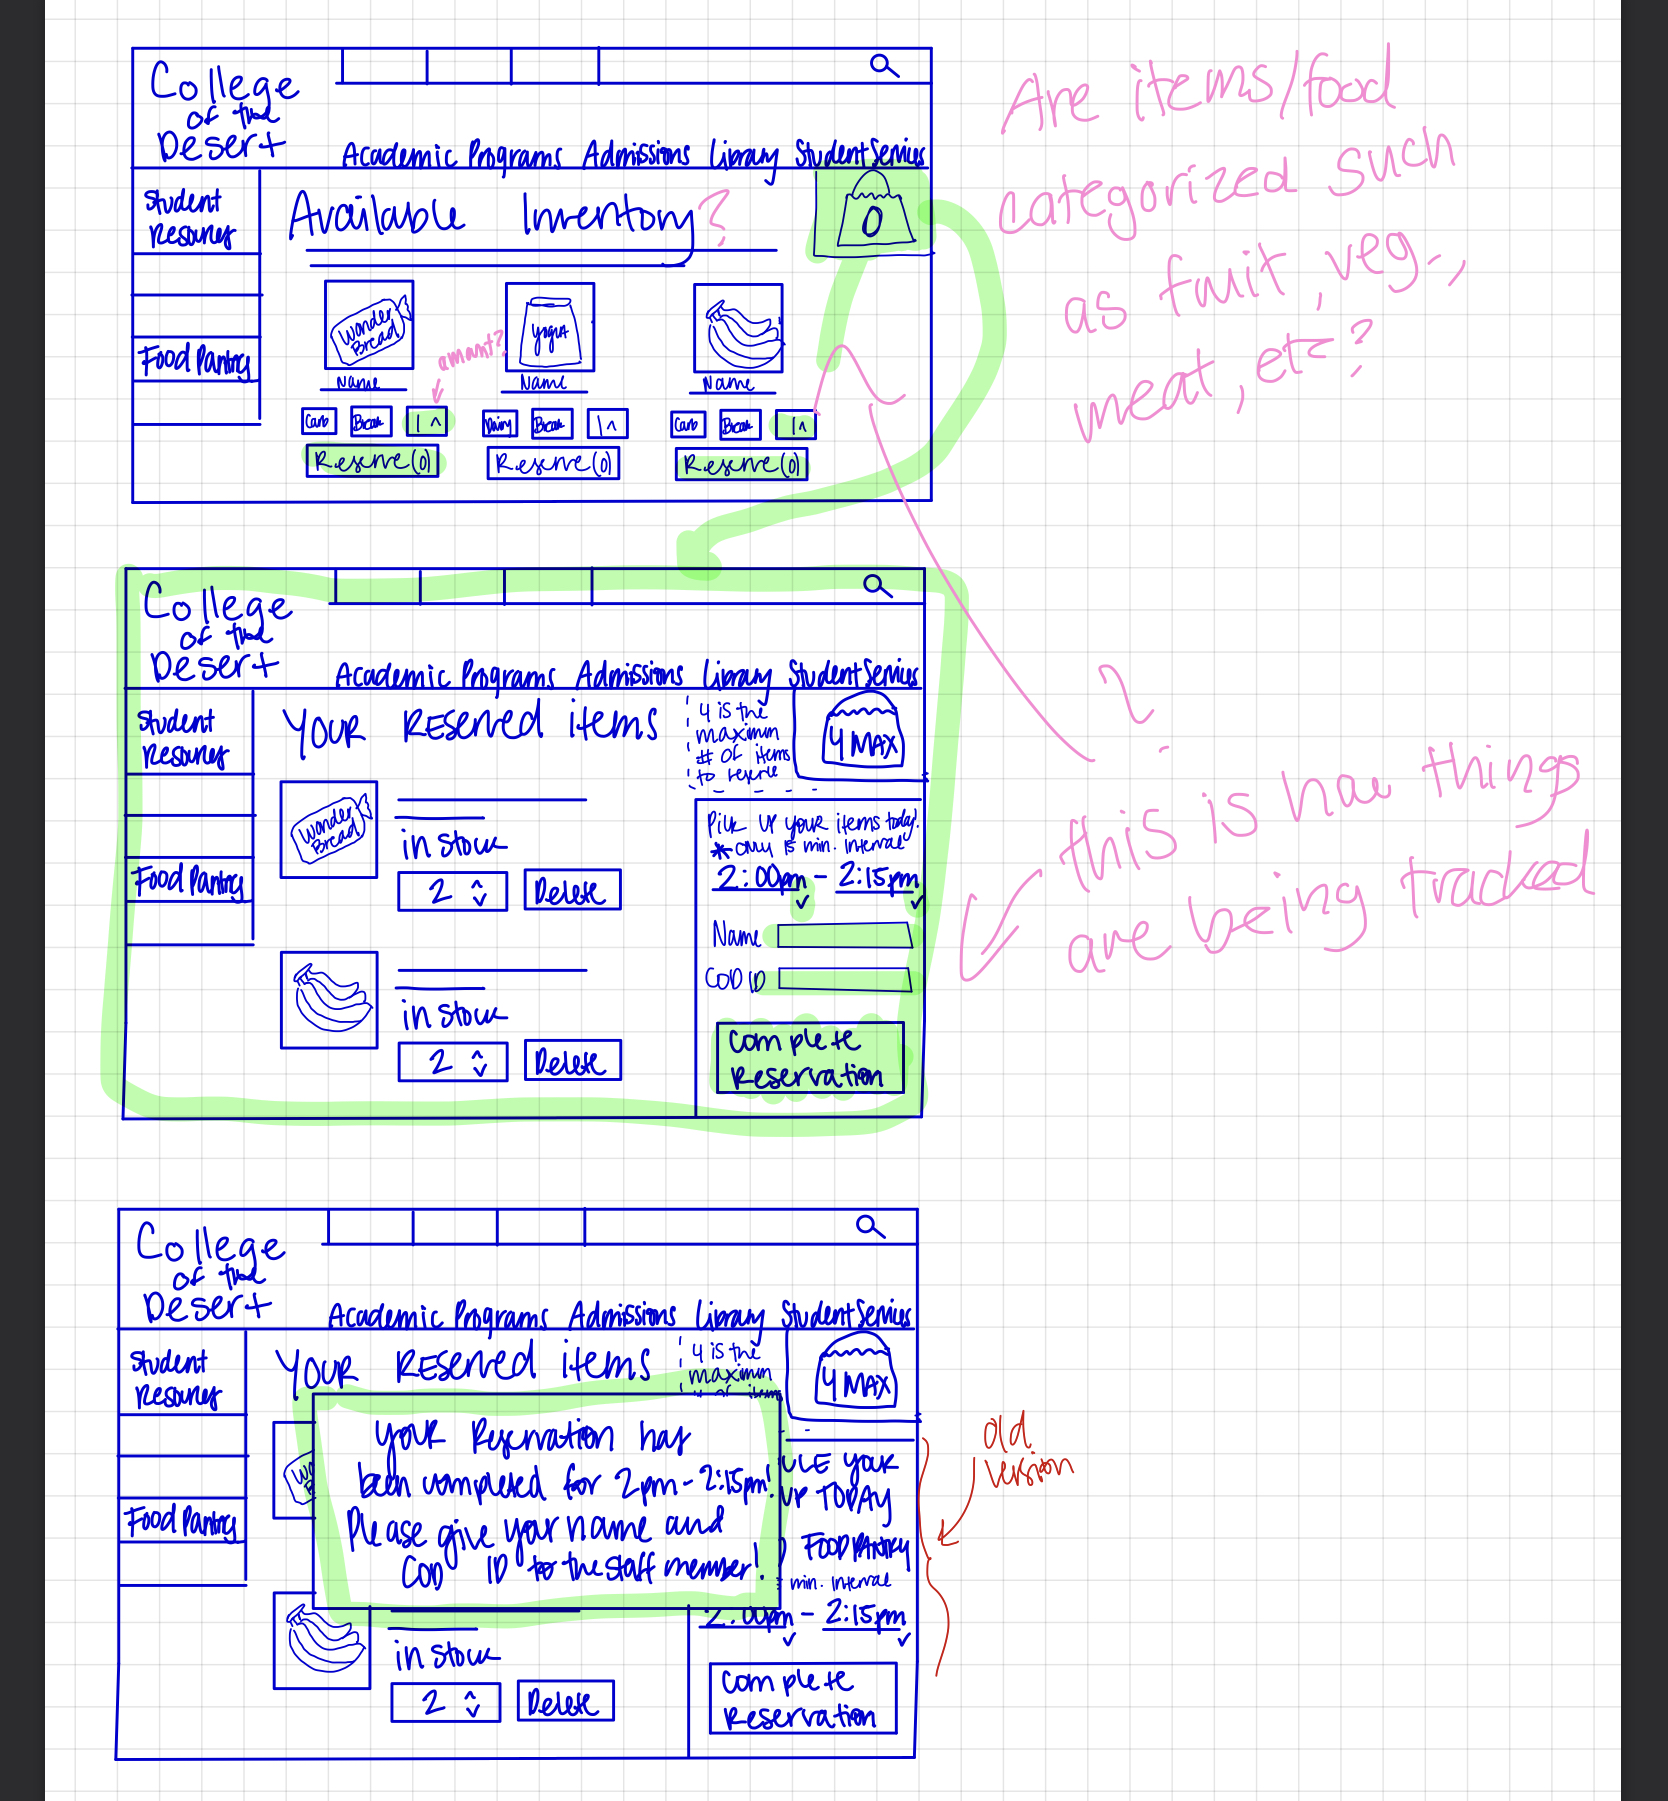 College
of the
Desert
Academic Programs Admissions Library Student Services
Student
Resources
Food Pantry
Available Inventory?
0
Wonder
Bread
Yogurt
amount?
Name
Name
Name
Carb Break 1 ^
Dairy Break 1 ^
Carb Break 1 ^
Reserve (0)
Reserve (0)
Reserve (0)
Are items/food
categorized such
as fruit, veg.,
meat, etc?
College
of the
Desert
Academic Programs Admissions Library Student Services
Student
Resources
Food Pantry
Your Reserved items
4 is the
maximum
# of items
to reserve
4 MAX
Wonder
Bread
in stock
2
Delete
in stock
2
Delete
Pick up your items today!
* only 15 min. interval
2:00pm - 2:15pm
Name
COD ID
Complete
Reservation
?
this is how things
are being tracked
College
of the
Desert
Academic Programs Admissions Library Student Services
Student
Resources
Food Pantry
Your Reserved items
4 is the
maximum
4 MAX
Your Reservation has
been completed for 2pm - 2:15pm!
Please give your name and
COD ID to the staff member!
ULE your
UP TODAY
FOOD PANTRY
min. interval
2:00pm - 2:15pm
in stock
2
Delete
Complete
Reservation
old
version